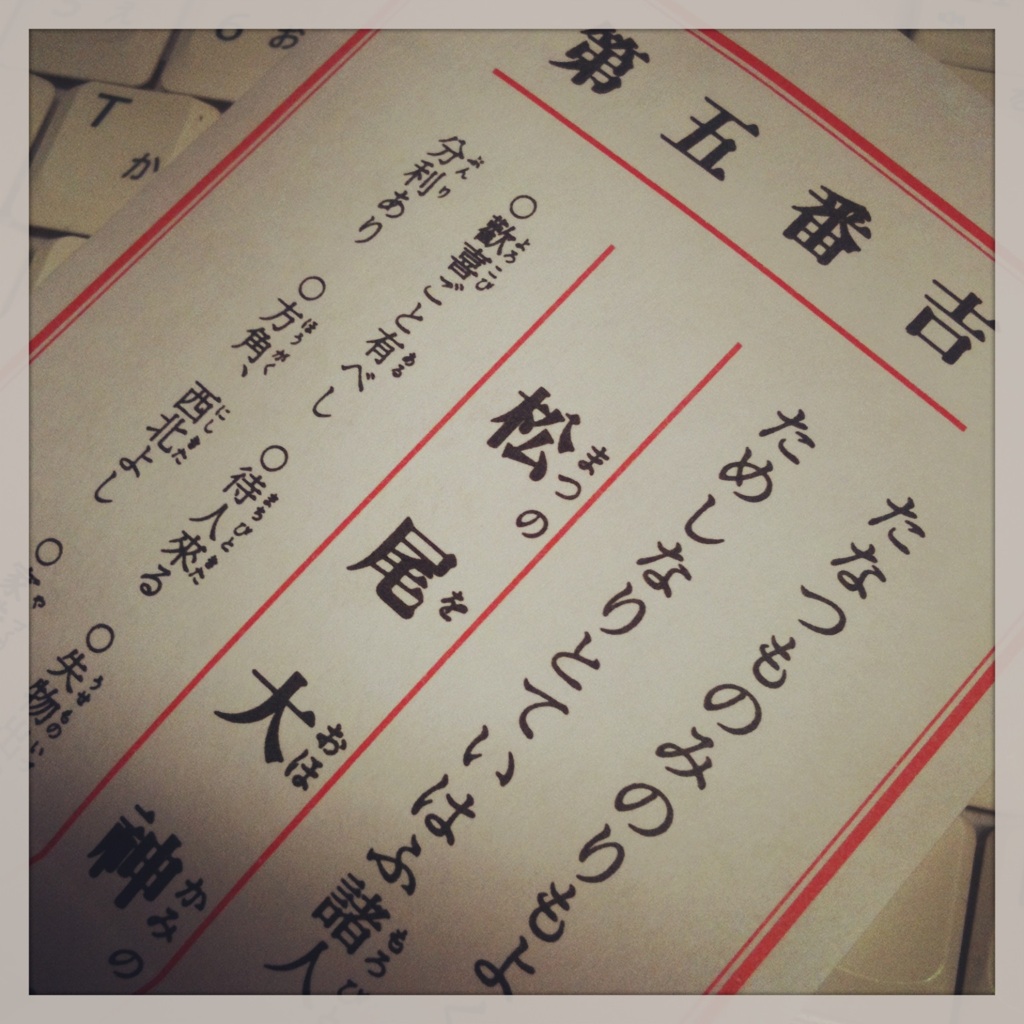 第五番吉
たなつものみのりもよ
ためしなりとていはふ諸人
松の尾大神の
○歡喜ごと有べし ○待人來る ○失物
分利あり ○方角、西北よし ○
6 お
T
か